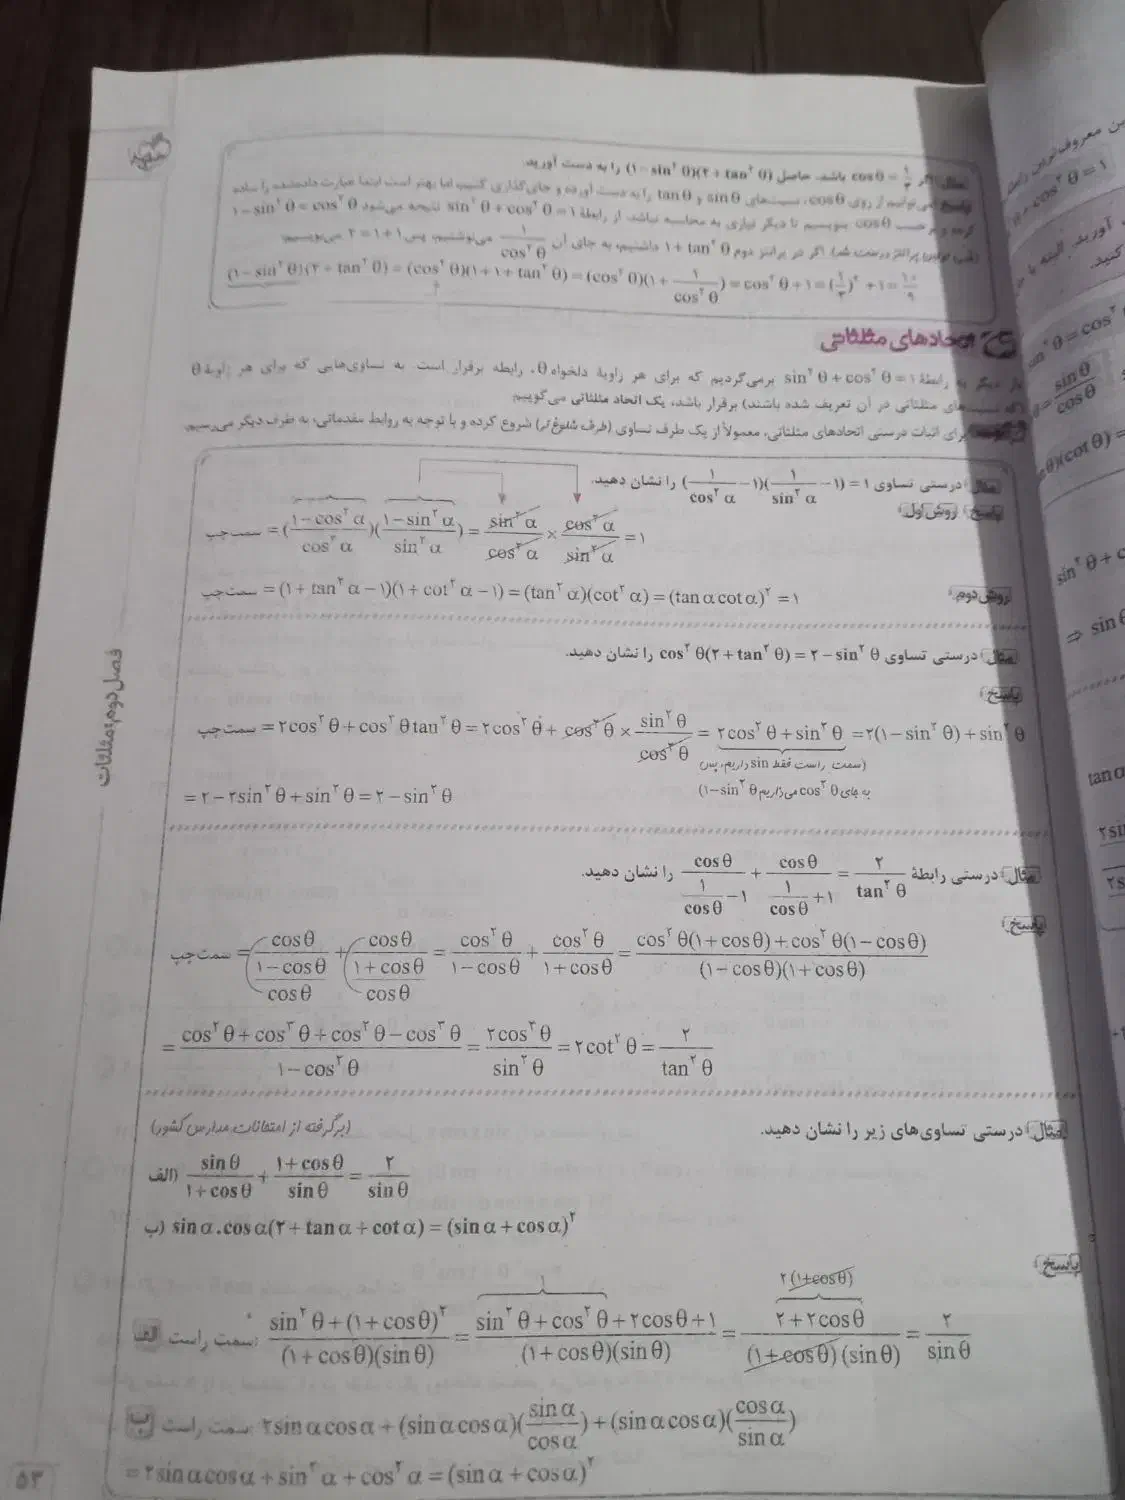 مثال: اگر cosθ = ۱/۳ باشد، حاصل (۱ − sin²θ)(۲ + tan²θ) را به دست آورید.
پاسخ: می‌توانیم از روی cosθ، نسبت‌های sinθ و tanθ را به دست آورده و جای‌گذاری کنیم، اما بهتر است ابتدا عبارت داده‌شده را ساده
کرده و برحسب cosθ بنویسیم تا دیگر نیازی به محاسبه نباشد. از رابطهٔ sin²θ + cos²θ = ۱ نتیجه می‌شود ۱ − sin²θ = cos²θ
(خب اولین پرانتز درست شد). اگر در پرانتز دوم ۱ + tan²θ داشتیم، به جای آن ۱/cos²θ می‌نوشتیم، پس ۱ + ۱ = ۲ می‌نویسیم:
(۱ − sin²θ)(۲ + tan²θ) = (cos²θ)(۱ + ۱ + tan²θ) = (cos²θ)(۱ + ۱/cos²θ) = cos²θ + ۱ = (۱/۳)² + ۱ = ۱۰/۹
اتحادهای مثلثاتی
بار دیگر به رابطهٔ sin²θ + cos²θ = ۱ برمی‌گردیم که برای هر زاویهٔ دلخواه θ، رابطه برقرار است. به تساوی‌هایی که برای هر زاویهٔ θ
(که نسبت‌های مثلثاتی در آن تعریف شده باشند) برقرار باشد، یک اتحاد مثلثاتی می‌گوییم.
برای اثبات درستی اتحادهای مثلثاتی، معمولاً از یک طرف تساوی (طرف شلوغ‌تر) شروع کرده و با توجه به روابط مقدماتی، به طرف دیگر می‌رسیم.
مثال: درستی تساوی (۱/cos²α − ۱)(۱/sin²α − ۱) = ۱ را نشان دهید.
پاسخ: روش اول:
سمت چپ = ((۱ − cos²α)/cos²α)((۱ − sin²α)/sin²α) = sin²α/cos²α × cos²α/sin²α = ۱
روش دوم: سمت چپ = (۱ + tan²α − ۱)(۱ + cot²α − ۱) = (tan²α)(cot²α) = (tanα cotα)² = ۱
مثال: درستی تساوی cos²θ(۲ + tan²θ) = ۲ − sin²θ را نشان دهید.
پاسخ:
سمت چپ = ۲cos²θ + cos²θ tan²θ = ۲cos²θ + cos²θ × sin²θ/cos²θ = ۲cos²θ + sin²θ = ۲(۱ − sin²θ) + sin²θ
(سمت راست فقط sin داریم، پس
به جای cos²θ می‌ذاریم ۱ − sin²θ)
= ۲ − ۲sin²θ + sin²θ = ۲ − sin²θ
مثال: درستی رابطهٔ cosθ/(۱/cosθ − ۱) + cosθ/(۱/cosθ + ۱) = ۲/tan²θ را نشان دهید.
پاسخ:
سمت چپ = cosθ/((۱ − cosθ)/cosθ) + cosθ/((۱ + cosθ)/cosθ) = cos²θ/(۱ − cosθ) + cos²θ/(۱ + cosθ) = (cos²θ(۱ + cosθ) + cos²θ(۱ − cosθ))/((۱ − cosθ)(۱ + cosθ))
= (cos²θ + cos³θ + cos²θ − cos³θ)/(۱ − cos²θ) = ۲cos²θ/sin²θ = ۲cot²θ = ۲/tan²θ
مثال: درستی تساوی‌های زیر را نشان دهید. (برگرفته از امتحانات مدارس کشور)
الف) sinθ/(۱ + cosθ) + (۱ + cosθ)/sinθ = ۲/sinθ
ب) sinα.cosα(۲ + tanα + cotα) = (sinα + cosα)²
پاسخ:
الف سمت راست: (sin²θ + (۱ + cosθ)²)/((۱ + cosθ)(sinθ)) = (sin²θ + cos²θ + ۲cosθ + ۱)/((۱ + cosθ)(sinθ)) = (۲ + ۲cosθ)/((۱ + cosθ)(sinθ)) = ۲/sinθ
۱
۲(۱ + cosθ)
ب سمت راست: ۲sinα cosα + (sinα cosα)(sinα/cosα) + (sinα cosα)(cosα/sinα)
= ۲sinα cosα + sin²α + cos²α = (sinα + cosα)²
فصل دوم: مثلثات
۵۳